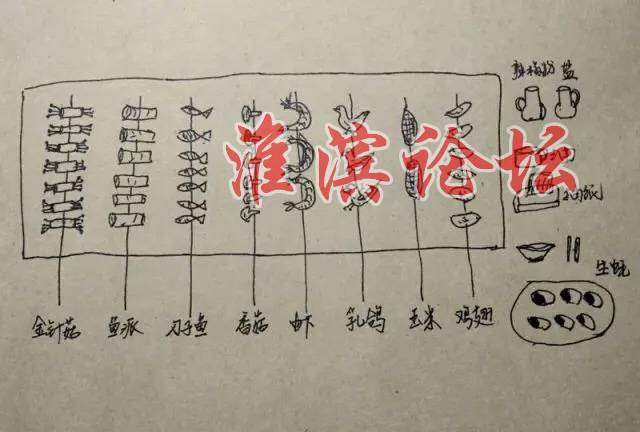 辣椒粉 盐
淮滨论坛
生蚝
金针菇 鱼派 刀子鱼 香菇 虾 乳鸽 玉米 鸡翅